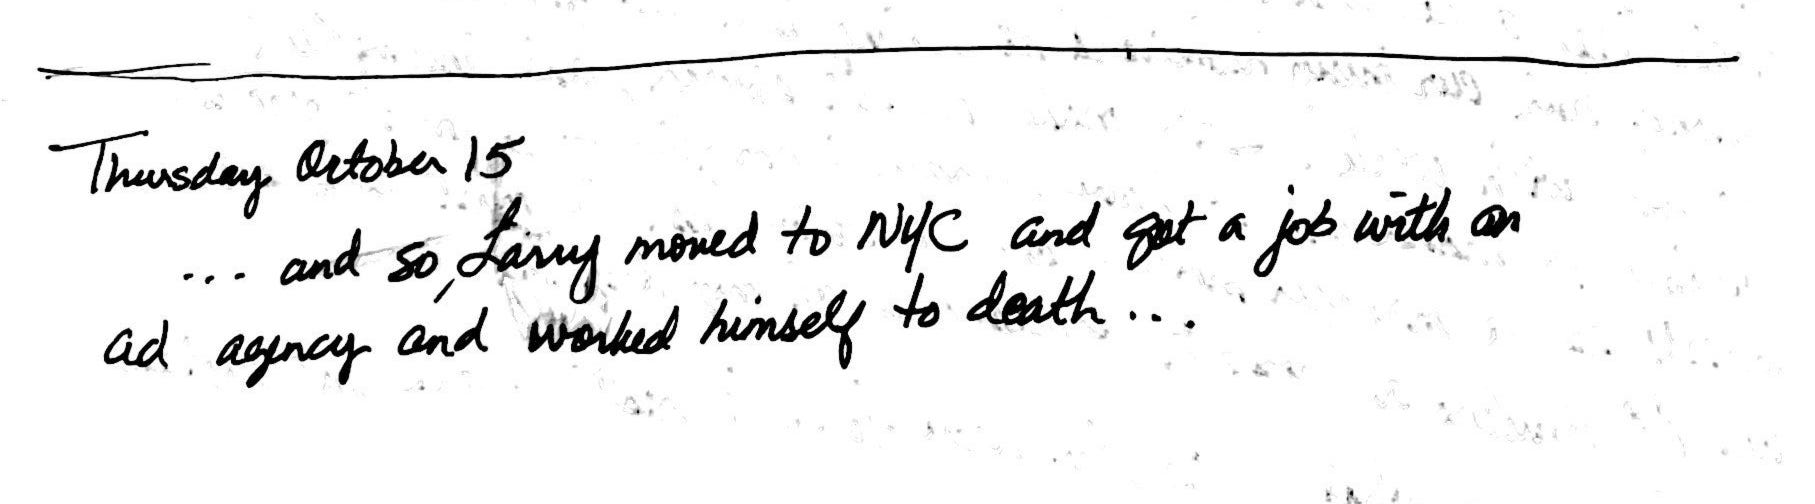 Thursday October 15
... and so, Larry moved to NYC and got a job with an
ad agency and worked himself to death...